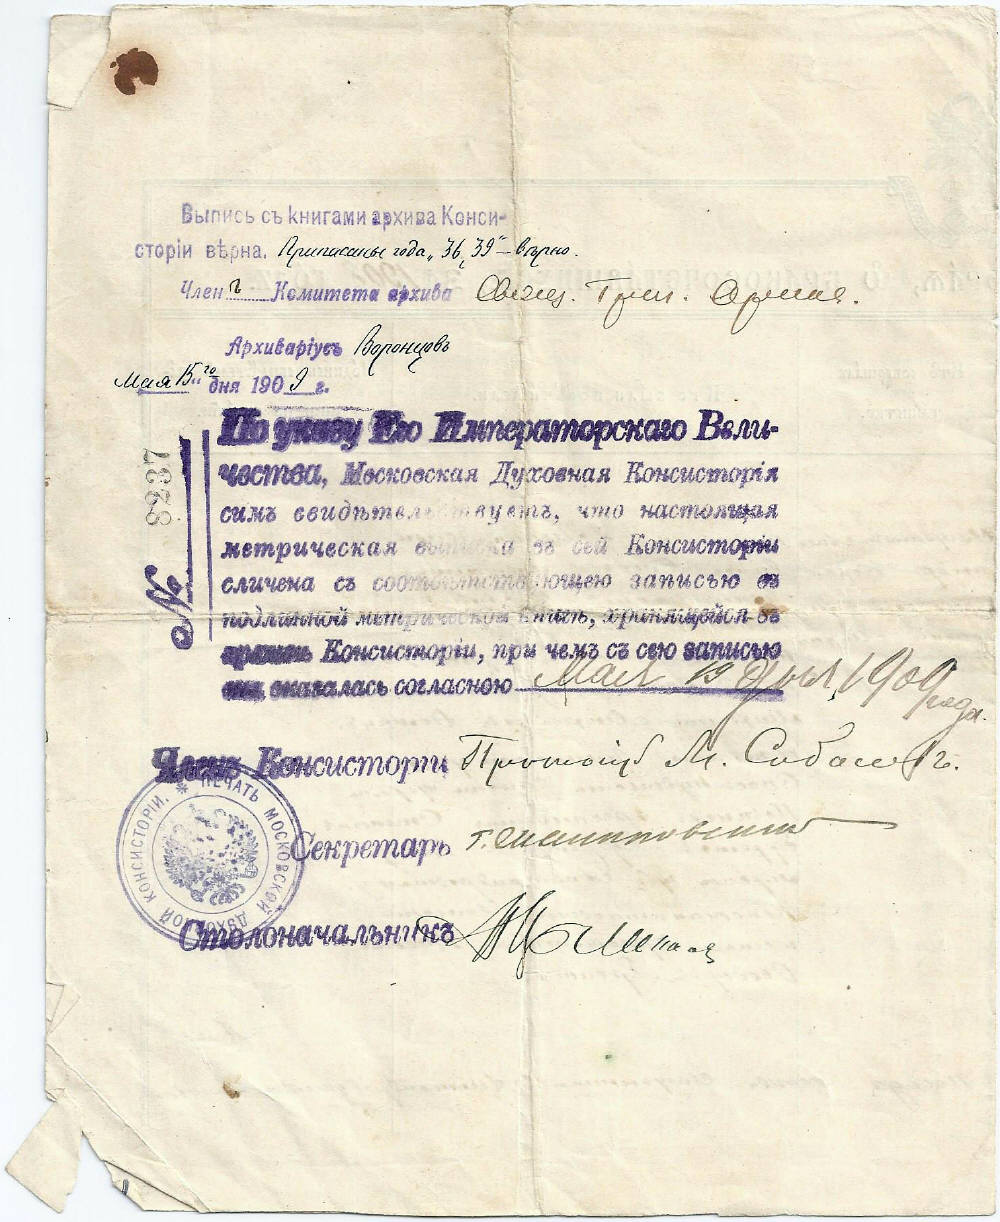 Выпись съ книгами архива Конси-
сторіи вѣрна. Приписаны года „36, 39“ – вѣрно.
Членъ Комитета архива Свящ.
Архиваріусъ Воронцовъ
Мая 15го дня 1909 г.
№ 8237
По указу Его Императорскаго Вели-
чества, Московская Духовная Консисторія
симъ свидѣтельствуетъ, что настоящая
метрическая выписка въ сей Консисторіи
сличена съ соотвѣтствующею записью въ
подлинной метрической книгѣ, хранящейся въ
архивѣ Консисторіи, при чемъ съ сею записью
она оказалась согласною Мая 19 дня 1909 года.
Членъ Консисторіи
ПЕЧАТЬ МОСКОВСКОЙ ДУХОВНОЙ КОНСИСТОРІИ.
Секретарь
Столоначальникъ